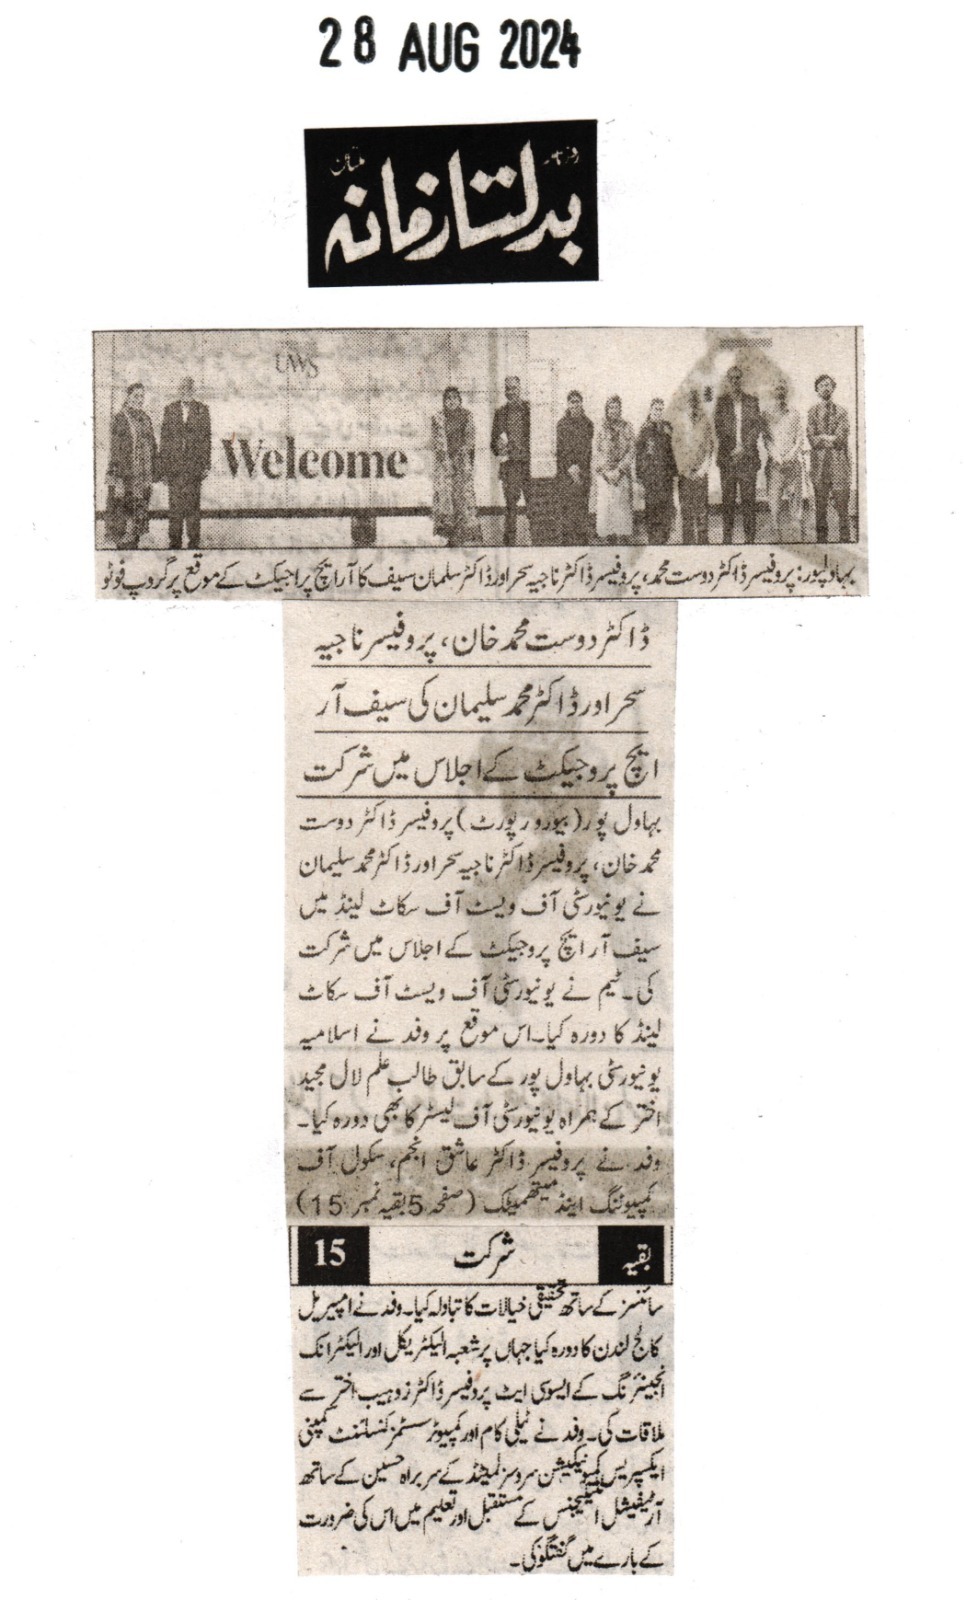 28 AUG 2024
روزنامہ بدلتا زمانہ ملتان
UWS
Welcome
بہاولپور: پروفیسر ڈاکٹر دوست محمد، پروفیسر ڈاکٹر ناجیہ سحر اور ڈاکٹر سلمان سیف کا آر ایچ پراجیکٹ کے موقع پر گروپ فوٹو
ڈاکٹر دوست محمد خان، پروفیسر ناجیہ
سحر اور ڈاکٹر محمد سلیمان کی سیف آر
ایچ پروجیکٹ کے اجلاس میں شرکت
بہاول پور (بیورو رپورٹ) پروفیسر ڈاکٹر دوست
محمد خان، پروفیسر ڈاکٹر ناجیہ سحر اور ڈاکٹر محمد سلیمان
نے یونیورسٹی آف ویسٹ آف سکاٹ لینڈ میں
سیف آر ایچ پروجیکٹ کے اجلاس میں شرکت
کی۔ ٹیم نے یونیورسٹی آف ویسٹ آف سکاٹ
لینڈ کا دورہ کیا۔ اس موقع پر وفد نے اسلامیہ
یونیورسٹی بہاول پور کے سابق طالب علم لال مجید
اختر کے ہمراہ یونیورسٹی آف لیسٹر کا بھی دورہ کیا۔
وفد نے پروفیسر ڈاکٹر عاشق انجم، سکول آف
کمپیوٹنگ اینڈ میتھمیٹک (صفحہ 5 بقیہ نمبر 15)
بقیہ شرکت 15
سائنسز کے ساتھ تحقیقی خیالات کا تبادلہ کیا۔ وفد نے امپیریل
کالج لندن کا دورہ کیا جہاں پر شعبہ الیکٹریکل اور الیکٹرانک
انجینئرنگ کے ایسوسی ایٹ پروفیسر ڈاکٹر زوہیب اختر سے
ملاقات کی۔ وفد نے ٹیلی کام اور کمپیوٹر سسٹمز کنسلٹنٹ کمپنی
ایکسپریس کمیونیکیشن سروسز لمیٹڈ کے سربراہ حسین کے ساتھ
آرٹیفیشل انٹیلیجنس کے مستقبل اور تعلیم میں اس کی ضرورت
کے بارے میں گفتگو کی۔